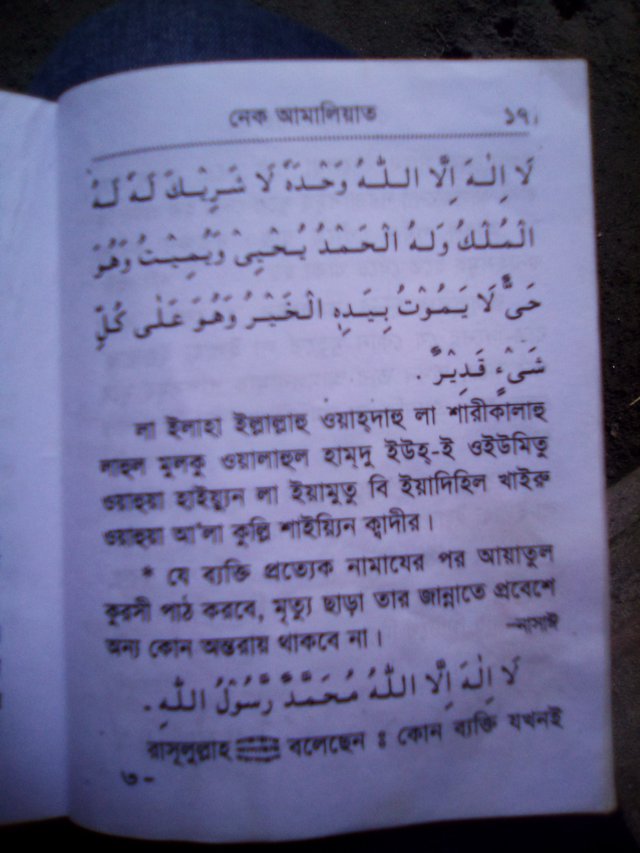 নেক আমালিয়াত ১৭।
لَا اِلٰهَ اِلَّا اللّٰهُ وَحْدَهٗ لَا شَرِيْكَ لَهٗ لَهُ
الْمُلْكُ وَلَهُ الْحَمْدُ يُحْيِىْ وَيُمِيْتُ وَهُوَ
حَىٌّ لَا يَمُوْتُ بِيَدِهِ الْخَيْرُ وَهُوَ عَلٰى كُلِّ
شَىْءٍ قَدِيْرٌ .
লা ইলাহা ইল্লাল্লাহু ওয়াহ্‌দাহু লা শারীকালাহু
লাহুল মুলকু ওয়ালাহুল হাম্‌দু ইউহ্‌-ই ওইউমিতু
ওয়াহুয়া হাইয়্যুন লা ইয়ামূতু বি ইয়াদিহিল খাইরু
ওয়াহুয়া আ'লা কুল্লি শাইয়্যিন ক্বাদীর।
* যে ব্যক্তি প্রত্যেক নামাযের পর আয়াতুল
কুরসী পাঠ করবে, মৃত্যু ছাড়া তার জান্নাতে প্রবেশে
অন্য কোন অন্তরায় থাকবে না। –নাসাঈ
لَا اِلٰهَ اِلَّا اللّٰهُ مُحَمَّدٌ رَّسُوْلُ اللّٰهِ .
রাসূলুল্লাহ বলেছেন ঃ কোন ব্যক্তি যখনই
৩-